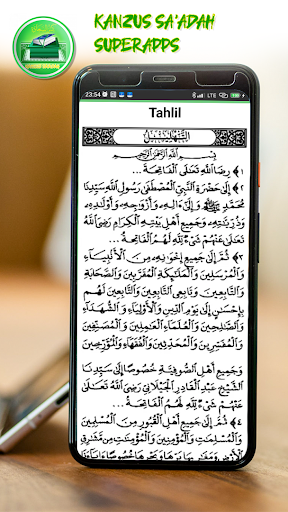 KANZUS SA'ADAH
SUPERAPPS
23:54
LTE
Tahlil
التَّهْلِيْلُ
بِسْمِ اللَّهِ الرَّحْمَنِ الرَّحِيْمِ
١﴾ رِضَا اللَّهِ تَعَالَى الْفَاتِحَةُ...
٢﴾ إِلَى حَضْرَةِ النَّبِيِّ الْمُصْطَفَى رَسُولِ اللَّهِ سَيِّدِنَا
مُحَمَّدٍ ﷺ وَإِلَهِ، وَأَزْوَاجِهِ، وَأَوْلَادِهِ،
وَذُرِّيَّتِهِ، وَجَمِيعِ أَهْلِ بَيْتِهِ الْكِرَامِ رَضِيَ اللَّهُ
تَعَالَى عَنْهُمْ شَيْءٌ لِلَّهِ لَهُمُ الْفَاتِحَةُ...
٣﴾ ثُمَّ إِلَى جَمِيعِ إِخْوَنِهِ، مِنَ الْأَنْبِيَاءِ
وَالْمُرْسَلِينَ وَالْمَلَٰئِكَةِ الْمُقَرَّبِينَ وَالصَّحَابَةِ
وَالتَّابِعِينَ، وَتَابِعِي التَّابِعِينَ وَالتَّابِعِينَ لَهُمْ
بِإِحْسَٰنٍ إِلَى يَوْمِ الدِّينِ وَالْأَوْلِيَاءِ وَالشُّهَدَاءِ
وَالصَّالِحِينَ وَالْعُلَمَاءِ الْعَامِلِينَ وَالْمُصَنِّفِينَ
وَالْمُقْرِئِينَ، وَالْمُحَدِّثِينَ وَالْفُقَهَاءِ وَالْمُؤَرِّخِينَ
ثُمَّ إِلَى جَمِيعِ أَهْلِ الصُّوفِيَّةِ خُصُوصًا إِلَى سَيِّدِنَا
الشَّيْخِ عَبْدِ الْقَادِرِ الْجَيْلَانِي رَضِيَ اللَّهُ تَعَالَى
عَنْهُمْ شَيْءٌ لِلَّهِ لَهُمُ الْفَاتِحَةُ...
٤﴾ ثُمَّ إِلَى جَمِيعِ أَهْلِ الْقُبُورِ مِنَ الْمُسْلِمِينَ
وَالْمُسْلِمَاتِ وَالْمُؤْمِنِينَ وَالْمُؤْمِنَاتِ مِنْ مَشَارِقِ